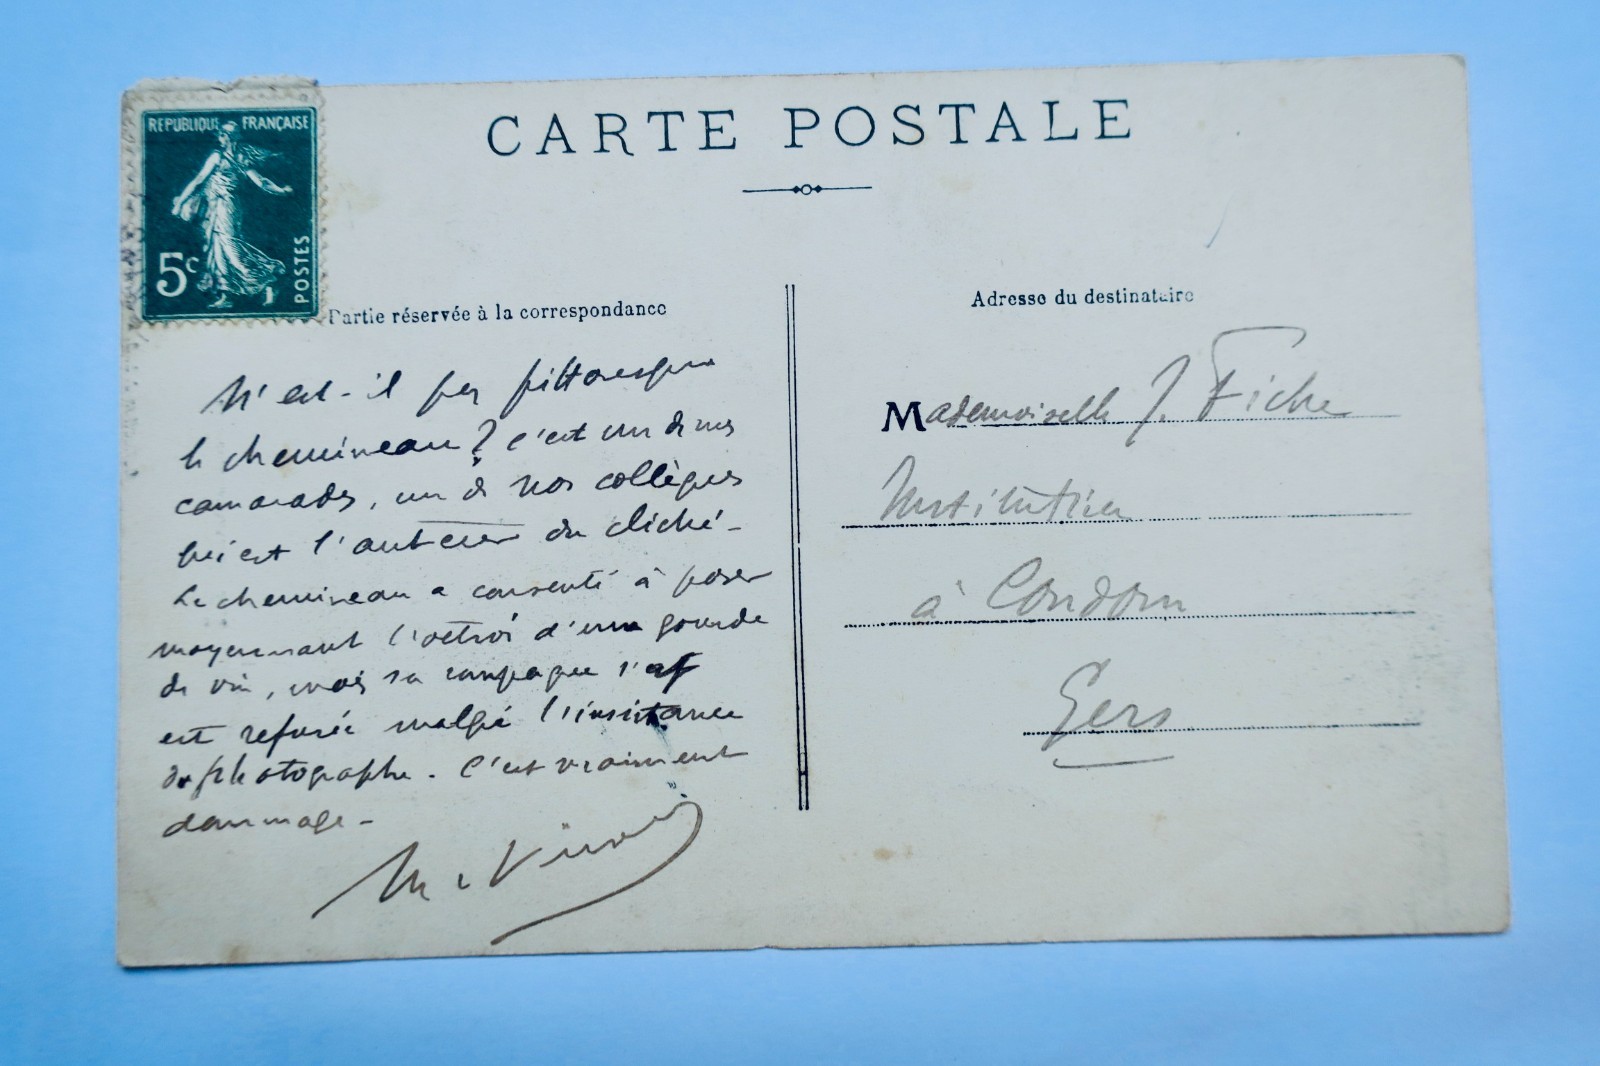 CARTE POSTALE
REPUBLIQUE FRANÇAISE
5c
POSTES
Partie réservée à la correspondance
N'est-il pas pittoresque
le chemineau ? C'est un de mes
camarades, un de nos collègues
qui est l'auteur du cliché -
Le chemineau a consenti à poser
moyennant l'octroi d'une gourde
de vin, mais sa compagne s'
est refusée malgré l'insistance
du photographe. C'est vraiment
dommage -
M.
Adresse du destinataire
Mademoiselle J. Fiche
Institutrice
à Condom
Gers